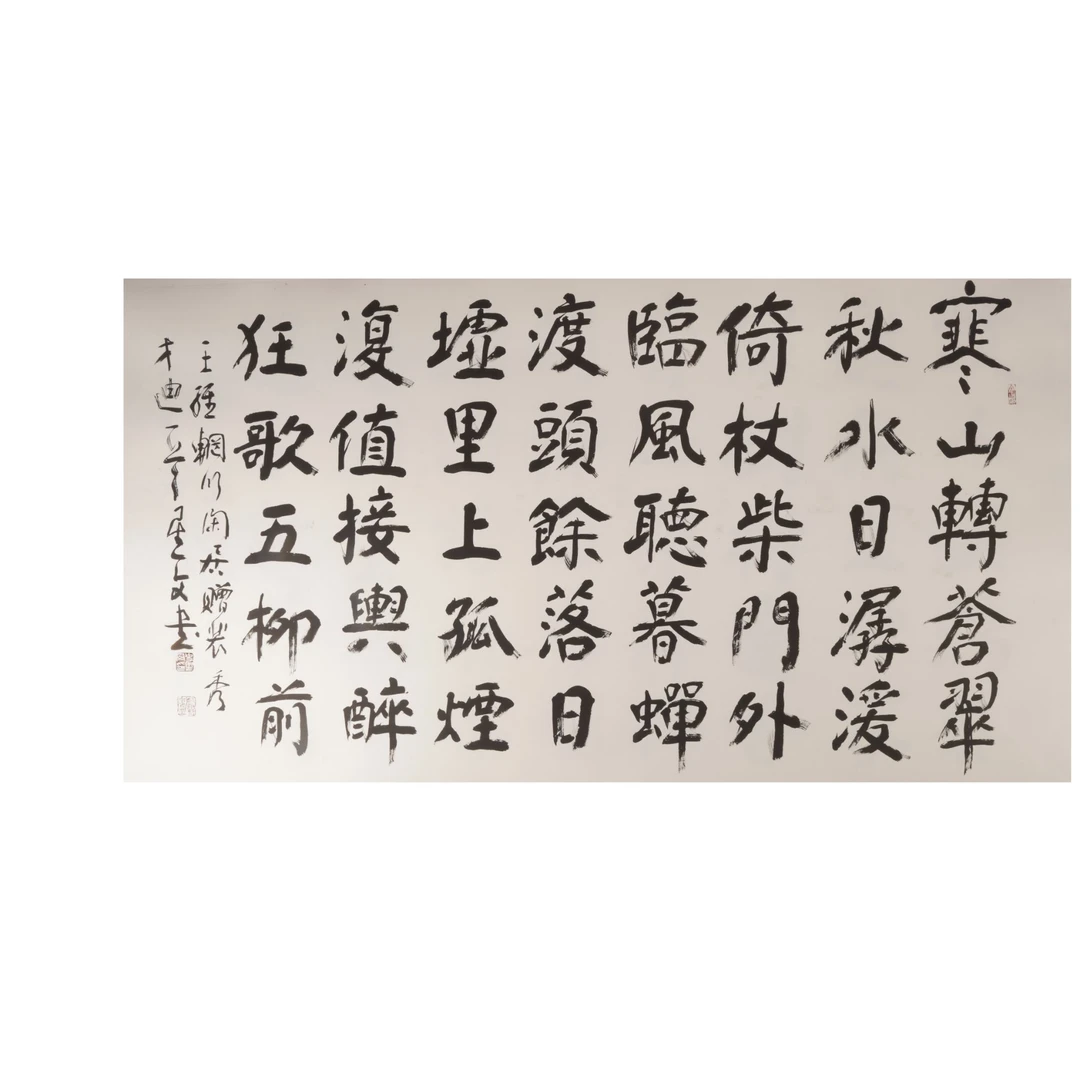 寒山轉蒼翠
秋水日潺湲
倚杖柴門外
臨風聽暮蟬
渡頭餘落日
墟里上孤煙
復值接輿醉
狂歌五柳前
王維輞川閑居贈裴秀
才迪書